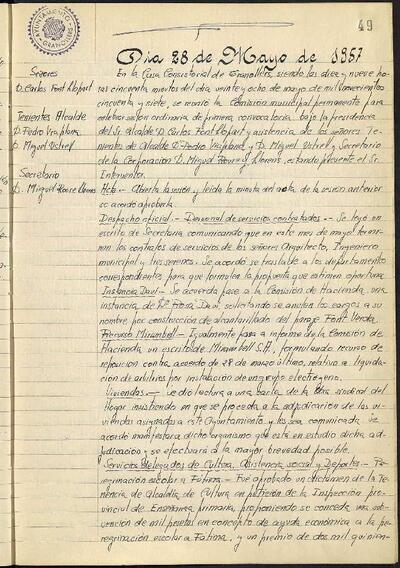 AYUNTAMIENTO GRANOLLERS
49
Dia 28 de Mayo de 1957
Señores
D. Carlos Font Llopart
Tenientes Alcalde
D. Pedro Viaplana
D. Miguel Ustrell
Secretario
D. Miguel Llorens
En la Casa Consistorial de Granollers, siendo las diez y nueve ho-
ras cincuenta minutos del dia veinte y ocho de mayo de mil novecientos
cincuenta y siete, se reunió la Comisión municipal permanente para
celebrar sesión ordinaria de primera convocatoria bajo la presidencia
del Sr. Alcalde D. Carlos Font Llopart y asistencia de los señores Te-
nientes de Alcalde D. Pedro Viaplana y D. Miguel Ustrell y Secretario
de la Corporación D. Miguel Llorens, estando presente el Sr.
Interventor.
Acto.- Abierta la sesión y leida la minuta del acta de la sesion anterior
se acordó aprobarla
Despacho oficial.- Personal de servicios contratados.- Se leyó en
escrito de Secretaria comunicando que en este mes de mayo termi-
nan los contratos de servicios de los señores Arquitecto, Ingeniero
municipal y tres serenos. Se acordó se traslade a los departamentos
correspondientes para que formulen la propuesta que estimen oportuna
Instancia Davi.- Se acuerda pase a la Comisión de Hacienda una
instancia de Dª Rosa Davi, solicitando se anulen los cargos a su
nombre por construcción de alcantarillado del paraje Font Verda.
Recurso Mirambell.- Igualmente pasa a informe de la Comisión de
Hacienda un escrito de Mirambell S.A., formulando recurso de
reposición contra acuerdo de 28 de marzo último, relativo a liquida-
ción de arbitrios por instalación de un grupo electrogeno.
Viviendas.- Se dio lectura a una carta de la Obra sindical del
Hogar insistiendo en que se proceda a la adjudicación de las vi-
viendas asignadas a este Ayuntamiento y les sea comunicada. Se
acordó manifestar a dicho organismo que está en estudio dicha ad-
judicación y se efectuará a la mayor brevedad posible.
Servicios delegados de Cultura, Asistencia social y Deportes.- Pe-
regrinación escolar a Fátima.- Fué aprobado un dictamen de la Te-
nencia de Alcaldía de Cultura en petición de la Inspección pro-
vincial de Enseñanza primaria, proponiendo se conceda una sub-
vención de mil pesetas en concepto de ayuda económica a la pe-
regrinación escolar a Fátima, y un premio de dos mil quinien-